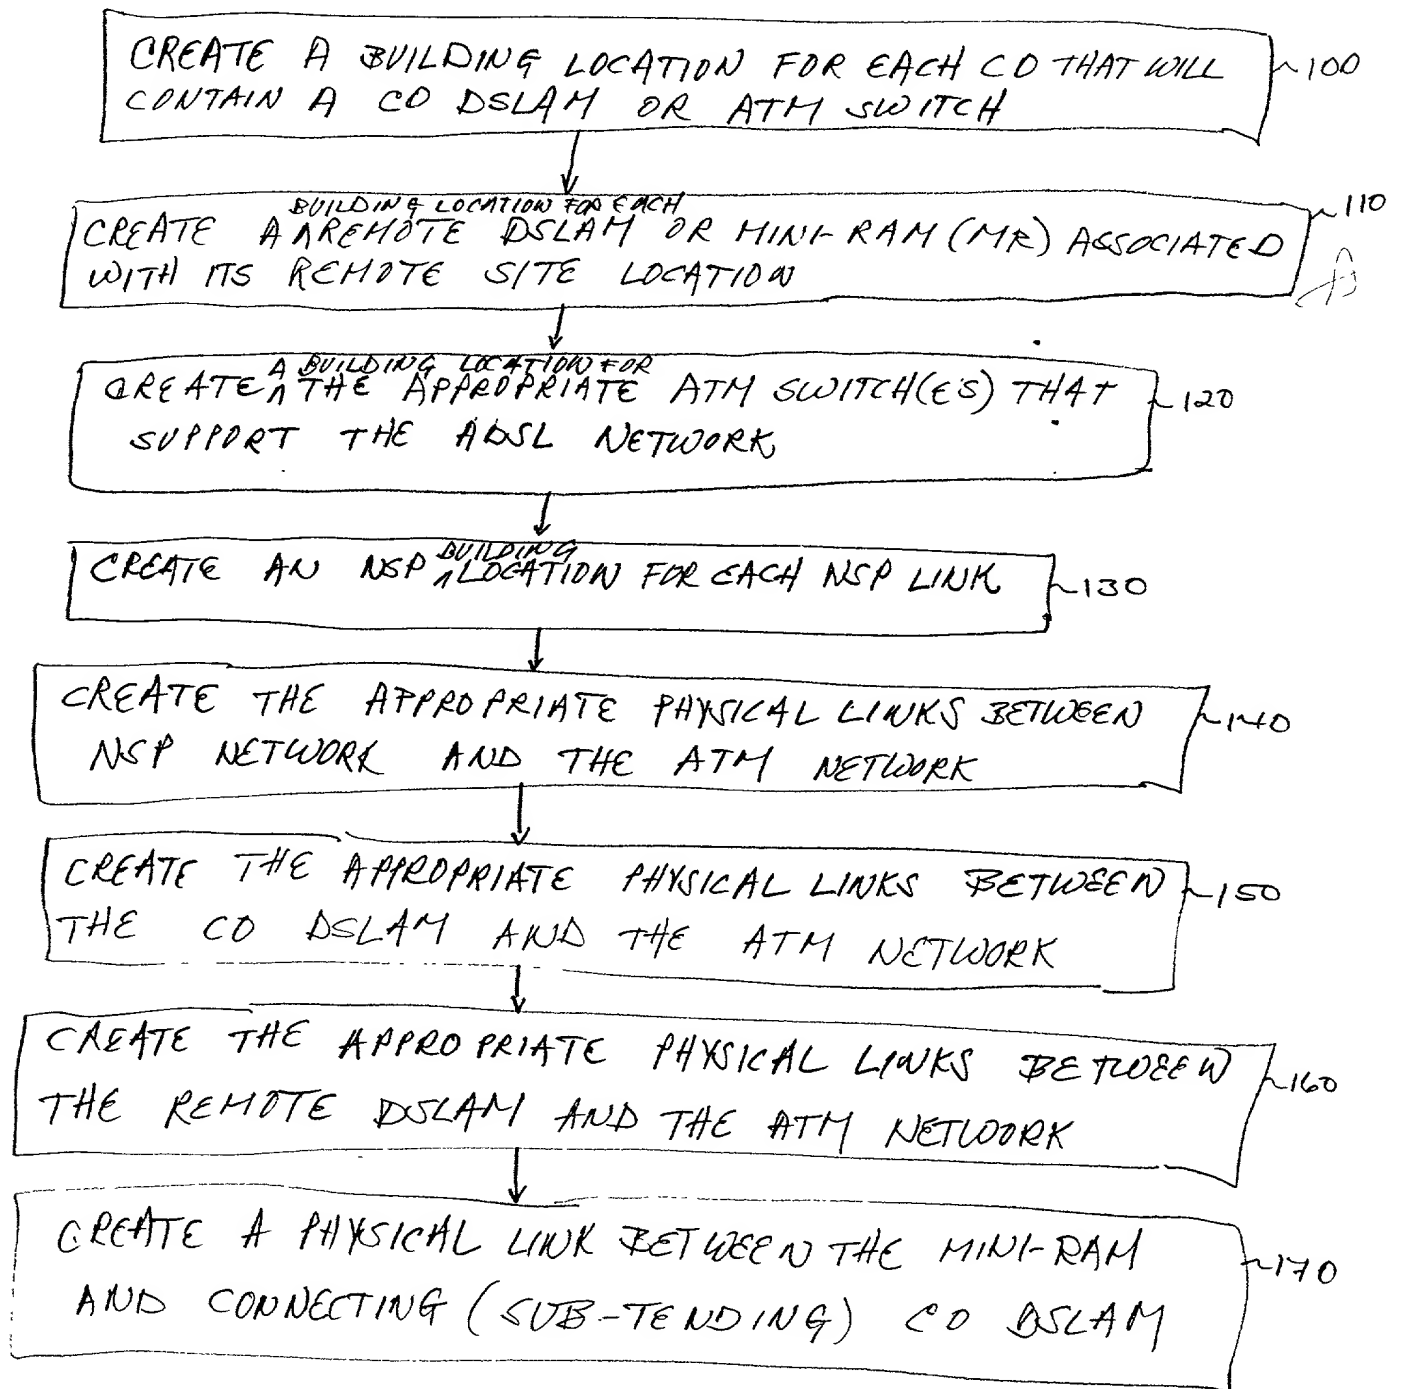 CREATE A BUILDING LOCATION FOR EACH CO THAT WILL 100
CONTAIN A CO DSLAM OR ATM SWITCH
BUILDING LOCATION FOR EACH
CREATE A ^ REMOTE DSLAM OR MINI-RAM (MR) ASSOCIATED 110
WITH ITS REMOTE SITE LOCATION
A BUILDING LOCATION FOR
CREATE ^ THE APPROPRIATE ATM SWITCH(ES) THAT 120
SUPPORT THE ADSL NETWORK
BUILDING
CREATE AN NSP ^ LOCATION FOR EACH NSP LINK 130
CREATE THE APPROPRIATE PHYSICAL LINKS BETWEEN 140
NSP NETWORK AND THE ATM NETWORK
CREATE THE APPROPRIATE PHYSICAL LINKS BETWEEN 150
THE CO DSLAM AND THE ATM NETWORK
CREATE THE APPROPRIATE PHYSICAL LINKS BETWEEN 160
THE REMOTE DSLAM AND THE ATM NETWORK
CREATE A PHYSICAL LINK BETWEEN THE MINI-RAM 170
AND CONNECTING (SUB-TENDING) CO DSLAM